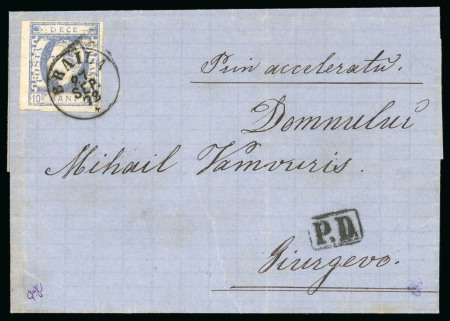 DECE
POSTA
10 BANI
BRAILA
27
SEP
72
Prin acceleratu.
Domnului
Mihail Vamouris.
P.D.
Giurgevo.